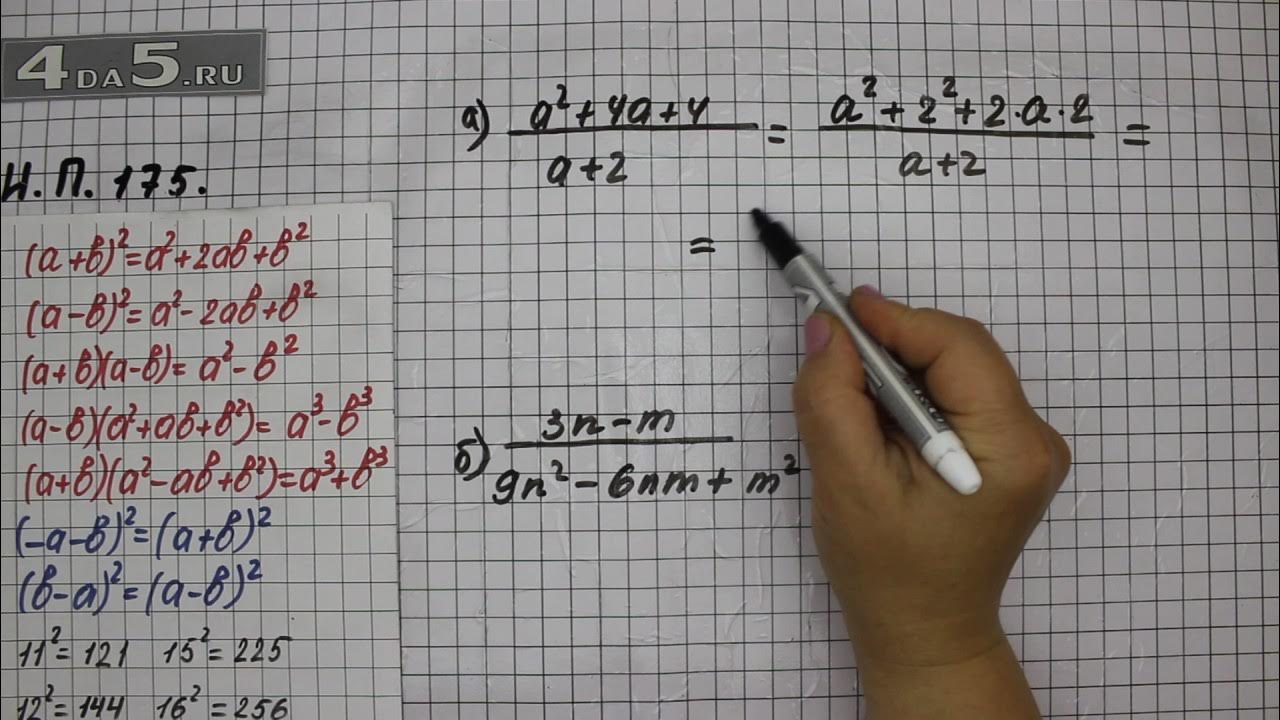 4DA5.RU
И.П. 175.
(a+в)²=a²+2aв+в²
(a-в)²=a²-2aв+в²
(a+в)(a-в)=a²-в²
(a-в)(a²+aв+в²)=a³-в³
(a+в)(a²-aв+в²)=a³+в³
(-a-в)²=(a+в)²
(в-a)²=(a-в)²
11²=121 15²=225
12²=144 16²=256
а) (a²+4a+4)/(a+2) = (a²+2²+2·a·2)/(a+2) =
=
б) (3n-m)/(9n²-6nm+m²)